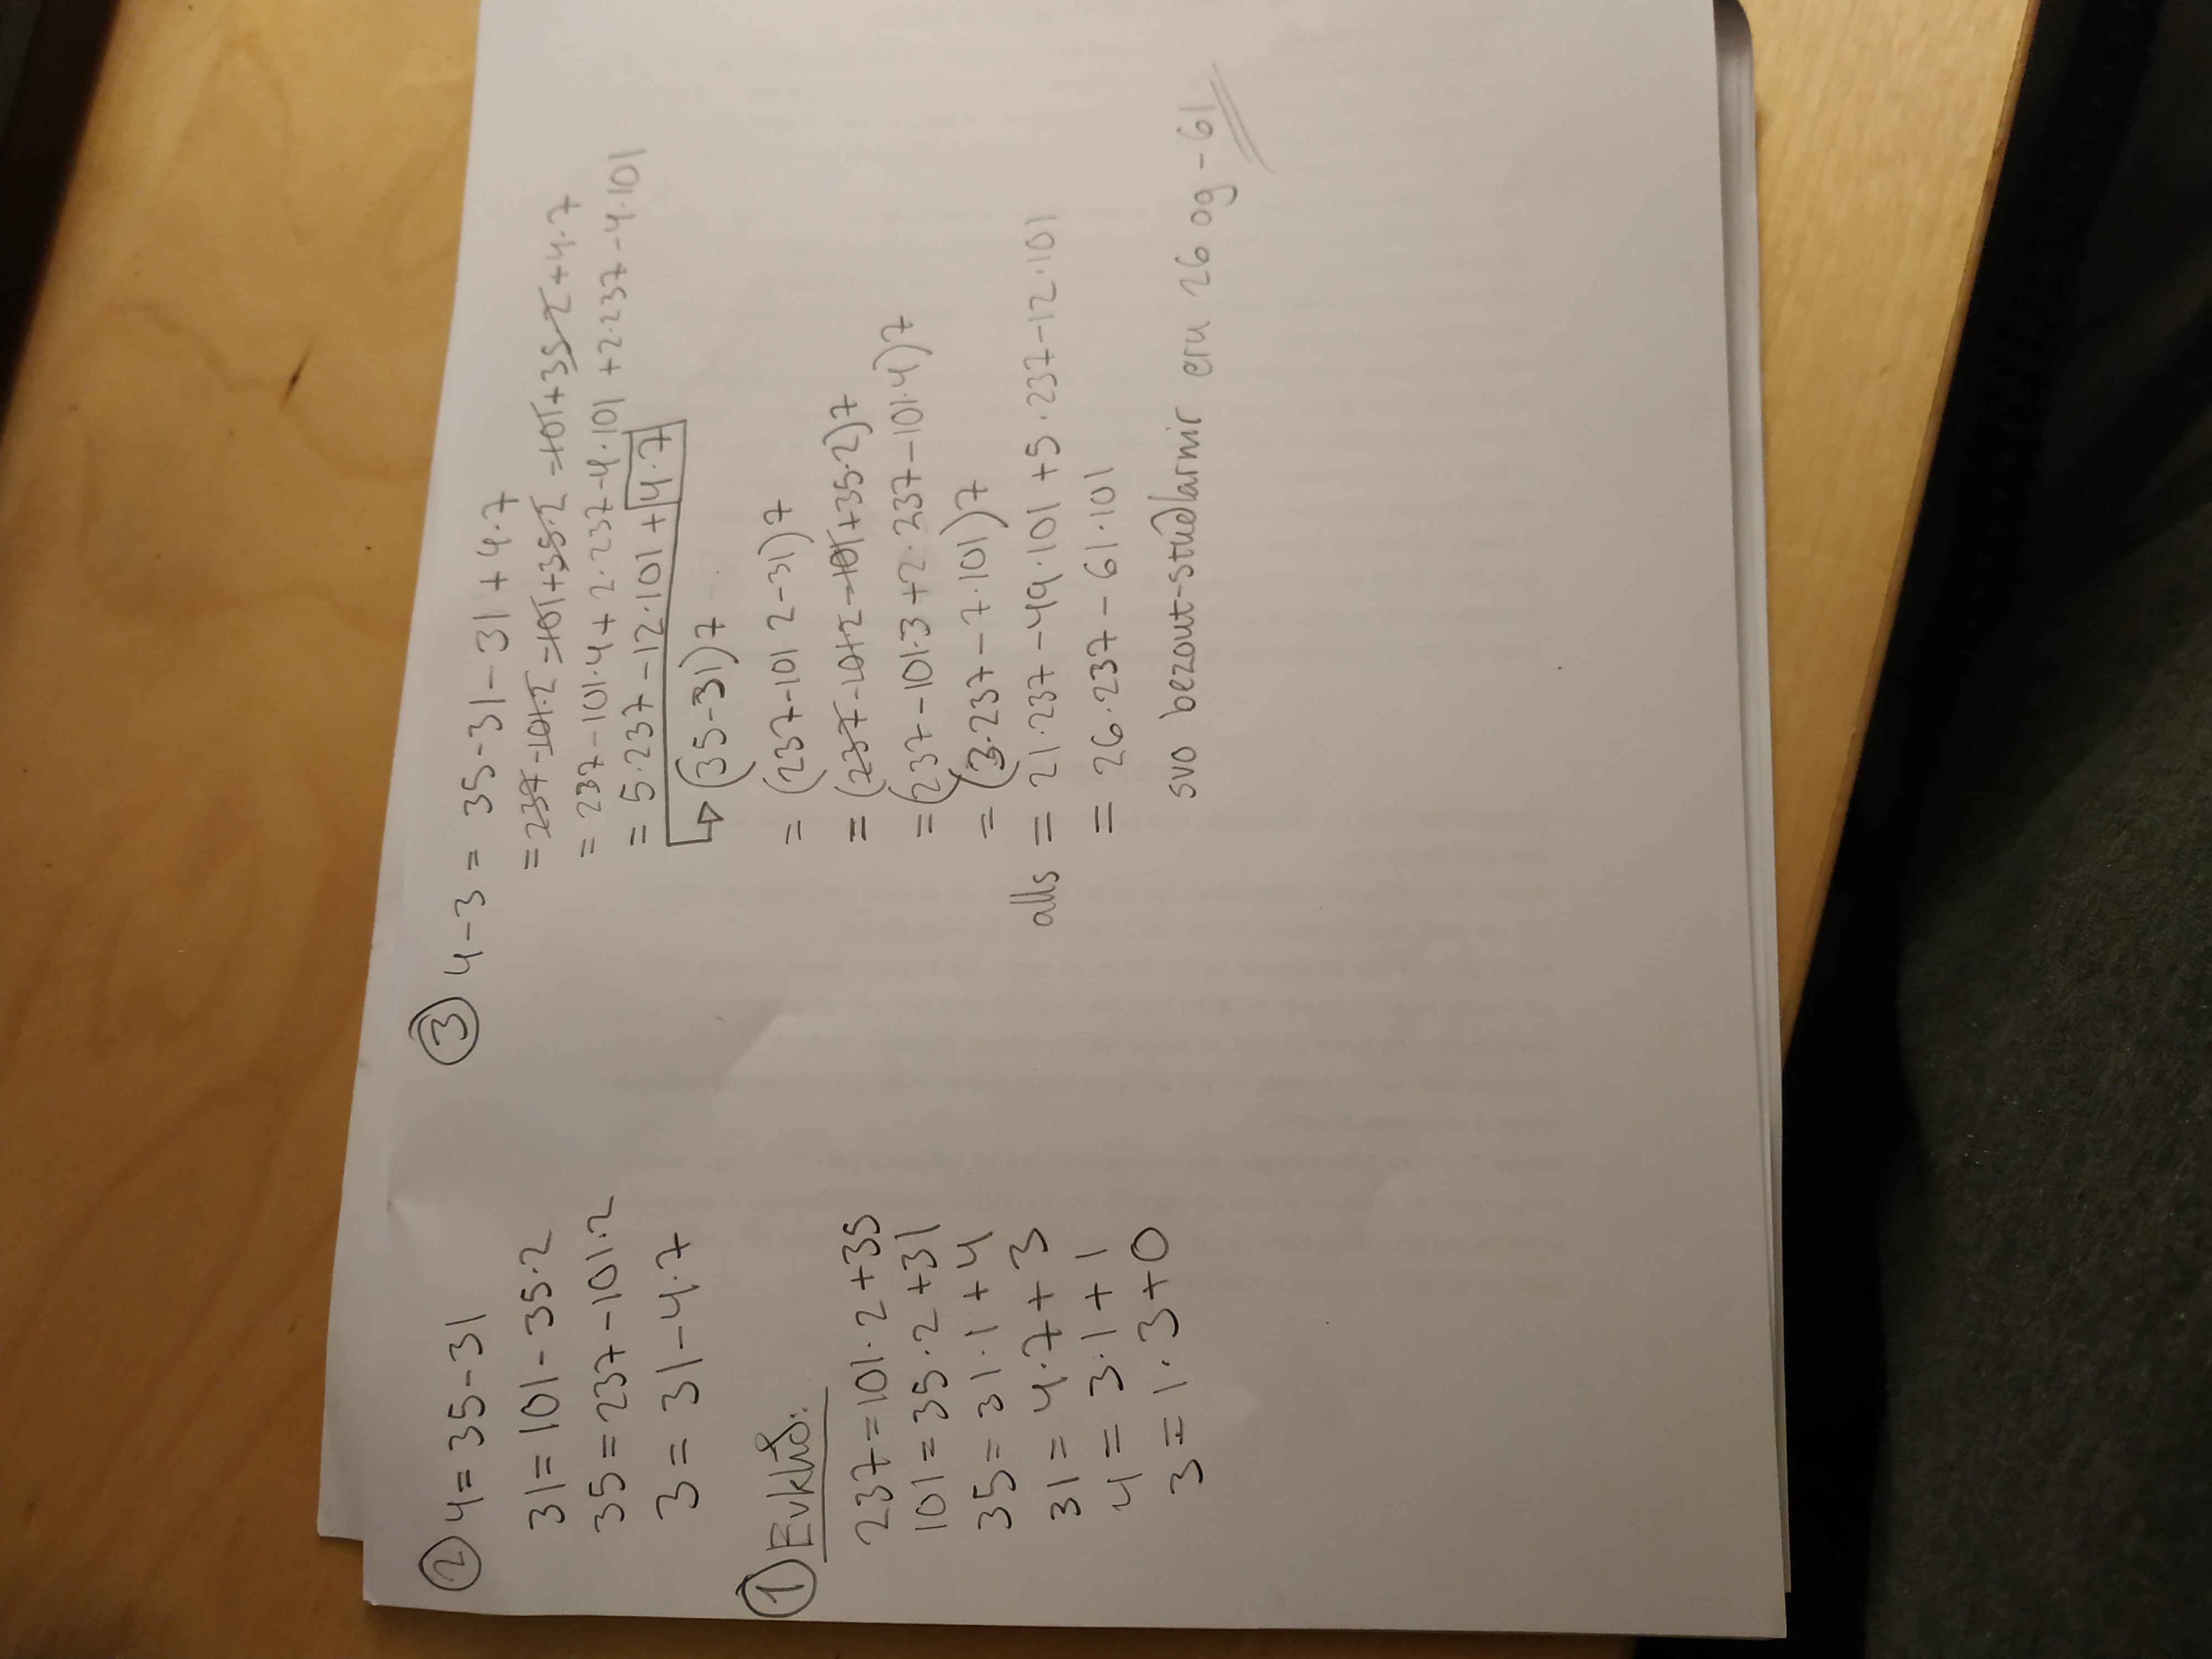 ② 4 = 35 - 31
31 = 101 - 35·2
35 = 237 - 101·2
3 = 31 - 4·7
① Evklíð:
237 = 101·2 + 35
101 = 35·2 + 31
35 = 31·1 + 4
31 = 4·7 + 3
4 = 3·1 + 1
3 = 1·3 + 0
③ 4 - 3 = 35 - 31 - 31 + 4·7
= 237 - 101·2 - 101 + 35·2 - 101 + 35·2 + 4·7
= 237 - 101·4 + 2·237 - 4·101 + 2·237 - 4·101
= 5·237 - 12·101 + 4·7
(35 - 31)7
= (237 - 101·2 - 31)7
= (237 - 101·2 - 101 + 35·2)7
= (237 - 101·3 + 2·237 - 101·4)7
= (3·237 - 7·101)7
alls = 21·237 - 49·101 + 5·237 - 12·101
= 26·237 - 61·101
svo bezout-stuðlarnir eru 26 og -61